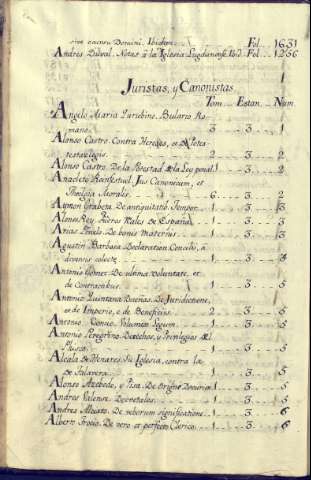 sive caensu Domini. Ibidem Fol... 1631
Andres Duval. Notas à la Iglesia Lugdunense. Ibid. Fol... 1256
Juristas, y Canonistas
Tom... Estan... Num
Angelo Maria Querubino, Bulario Ro
mano 3...3...1
Alonso Castro Contra Hereges, et
testas legis 2...3...2
Alonso Castro De la Potestad de la Ley penal 1...3...2
Anacleto Reinfestuel. Jus Canonicum, et
Theologia Morales 6...3...2
Aymon Crabeta De antiquitatis Tempor. 1...3...3
Alones Rey. Fueros Reales de España 1...3...3
Arias Pinelo De bonis Maternis 1...3...3
Agustin Barbosa Declaration Concilio, à
diversus colecta 1...3...3
Antonio Gomez De ultima voluntate, et
de Contractibus 1...3...5
Antonio Quintana Dueñas. De Juridicione,
et de Imperio, e de Beneficiis 2...3...5
Antonio Volumen legum 1...3...5
Antonio Peregrino Derechos, y Privilegios del
Fisco 1...3...5
Alcala de Henares Su Iglesia, contra la
de Talavera 1...3...5
Alonso Azebedo, y Pisa. De Origine 1...3...5
Andres Valense Decretales 1...3...5
Andres Alciato. De verborum significatione 1...3...6
Alberto De vero et perfecto Clerico 1...3...6